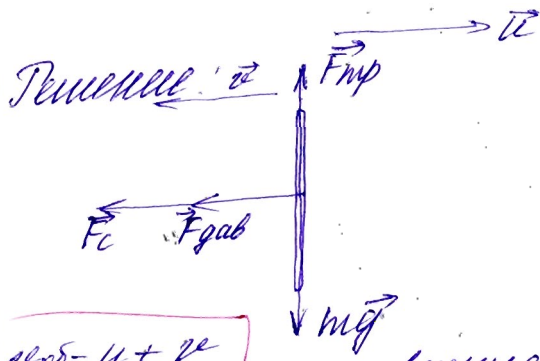 u⃗
Решение: v⃗ F⃗тр
F⃗c F⃗дав
mg⃗
u + v